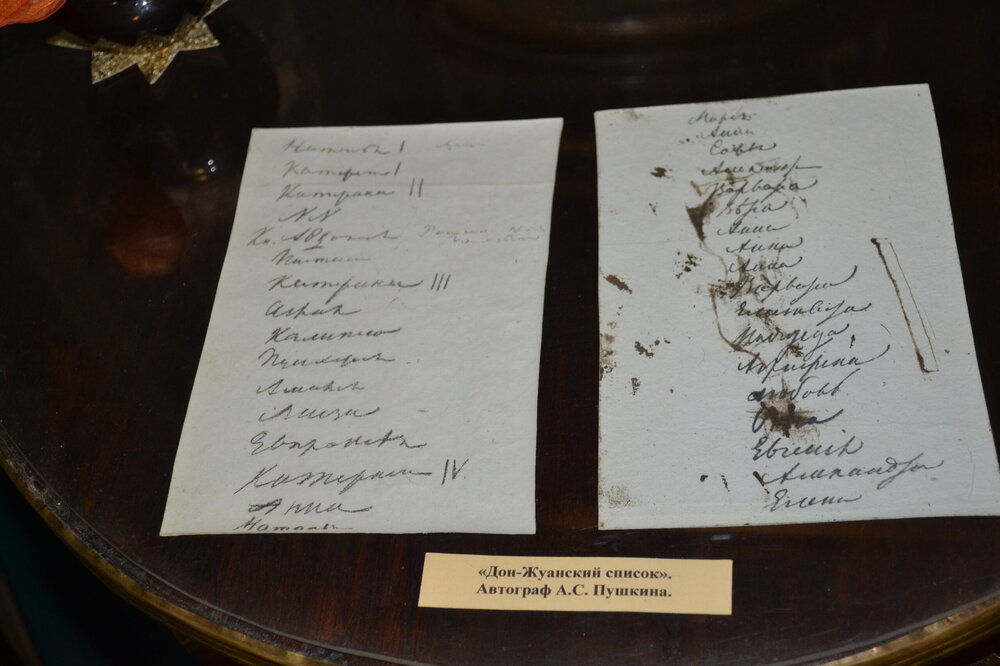 Наталья I
Катерина I
Катерина II
NN
Кн. Авдотья
Настасья
Катерина III
Аглая
Калипсо
Пулхерия
Амалія
Элиза
Евпраксея
Катерина IV
Анна
Наталья
Марія
Анна
Софья
Александра
Варвара
Вѣра
Анна
Анна
Анна
Варвара
Елизавета
Надежда
Аграфена
Любовь
Ольга
Евгенія
Александра
Елена
«Дон-Жуанский список».
Автограф А.С. Пушкина.